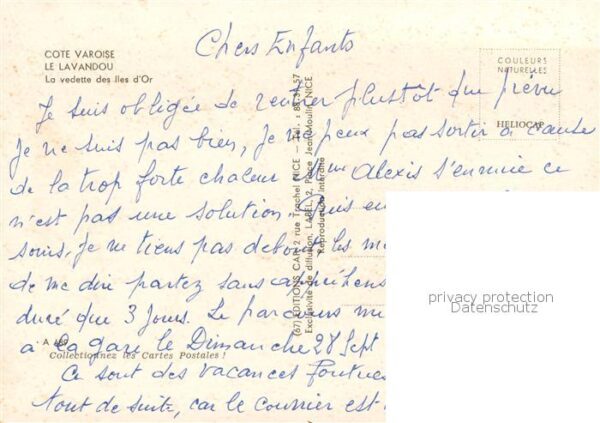 COTE VAROISE
LE LAVANDOU
La vedette des Iles d'Or
Chers Enfants
COULEURS
NATURELLES
HELIOCAP
Je suis obligée de rentrer plustôt que prévu
Je ne suis pas bien, je ne peux pas sortir à cause
de la trop forte chaleur Mme Alexis s'ennuie ce
n'est pas une solution puis en
sous, je ne tiens pas debout les
de me dire partez sans
duré que 3 jours. Le
à la gare le Dimanche 28 Sept
Ce sont des vacances
tout de suite, car le courrier est
A 489
Collectionnez les Cartes Postales !
(67) EDITIONS CAP, 2 rue Trachel NICE — Tél. : 88-37-57
Exclusivité de diffusion, LABEL, 2, Place Jean Moulin NICE
Reproduction Interdite
privacy protection
Datenschutz